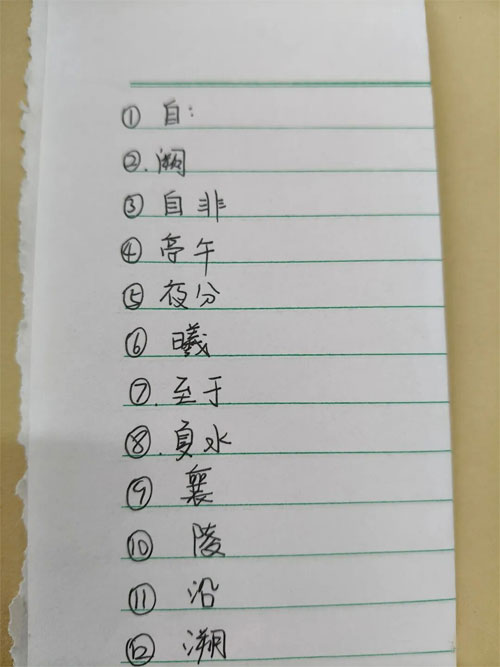 ① 自:
②. 阙
③ 自非
④ 亭午
⑤ 夜分
⑥ 曦
⑦. 至于
⑧. 夏水
⑨ 襄
⑩ 陵
⑪ 沿
⑫ 溯